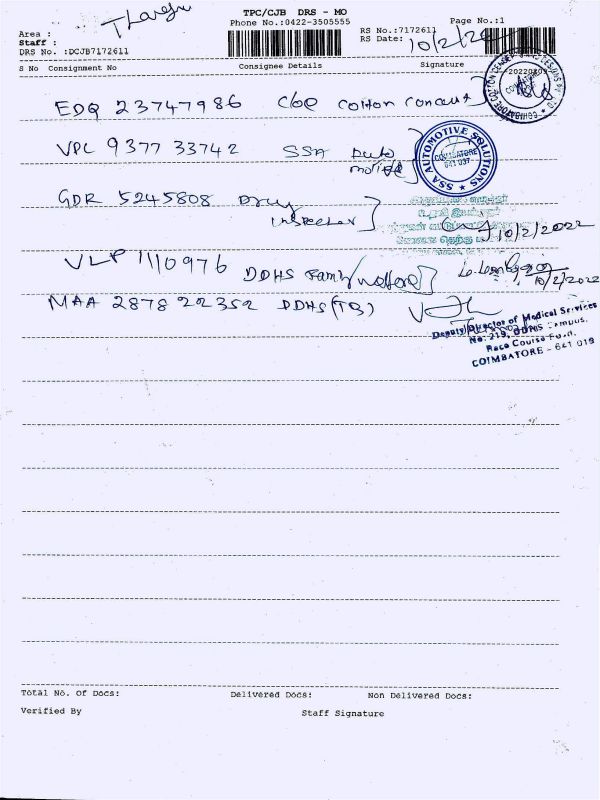 Thangu
TPC/CJB DRS - MO
Phone No.:0422-3505555
Page No.:1
Area :
Staff :
DRS No. :DCJB7172611
RS No.:7172611
RS Date: 10/2/22
S No Consignment No Consignee Details Signature
EDQ 23747986 Cbe Cotton
VPC 9377 33742 SSA Auto
SSA AUTOMOTIVE SOLUTIONS
COIMBATORE
641 037
GDR 5245808 Drug
Inspector
10/2/2022
VLP 1110976 DDHS Family
10/2/2022
MAA 2878 22352 DDHS (TB)
Deputy Director of Medical Services
No: 219, DDHS Campus,
Race Course Road,
COIMBATORE - 641 018
Total No. Of Docs: Delivered Docs: Non Delivered Docs:
Verified By Staff Signature